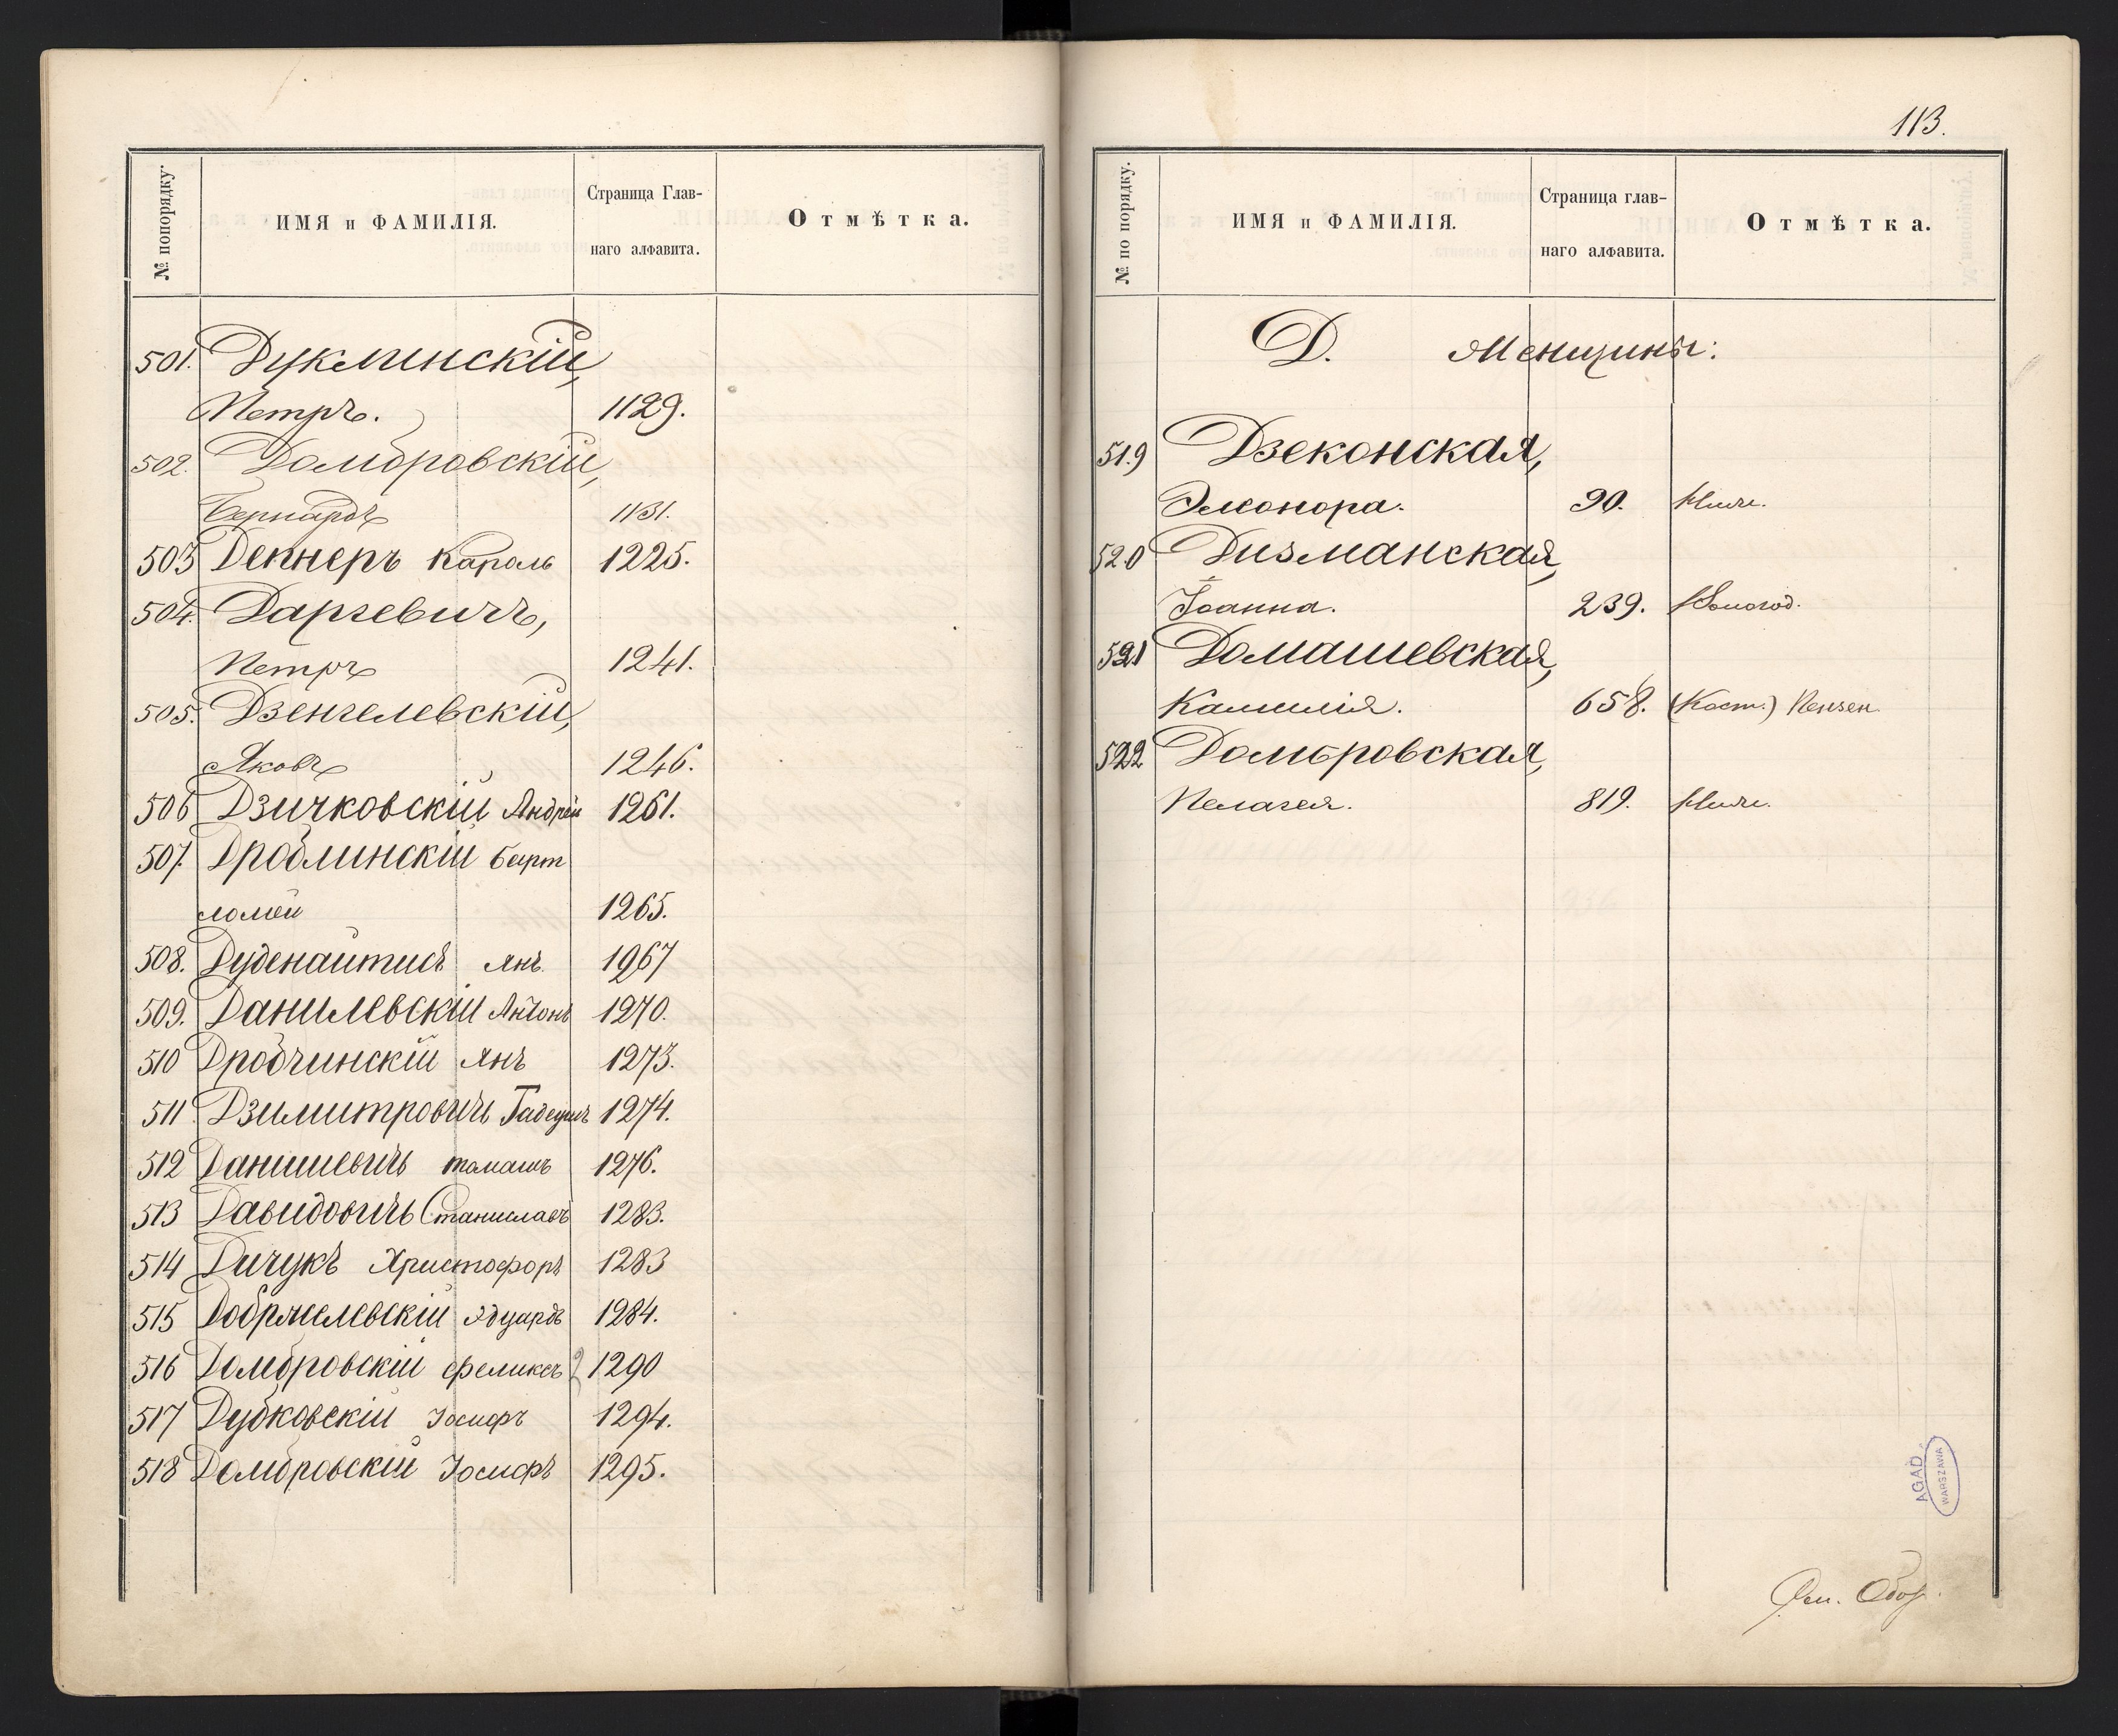 № попорядку.
ИМЯ и ФАМИЛІЯ.
Страница Глав-
наго алфавита.
Отмѣтка.
501. Дуклинскій,
Петръ. 1129.
502. Домбровскій,
Бернардъ 1131.
503 Деннеръ Кароль 1225.
504. Даргевичъ,
Петръ 1241.
505. Дзенгелевскій,
Яковъ 1246.
506 Дзичковскій Андрей 1261.
507. Дроблинскій Барт
ломей 1265.
508. Дуденайтисъ Янъ 1967
509. Данилевскій Антонъ 1270.
510 Дробчинскій Янъ 1273.
511 Дзимитровичъ Тадеушъ 1274.
512 Данишевичъ Томашъ 1276.
513 Давидовичъ Станиславъ 1283.
514 Дичукъ Христофоръ 1283
515 Добржелевскій Эдуардъ 1284.
516 Домбровскій Феликсъ 1290
517 Дубковскій Іосифъ 1294.
518 Домбровскій Іосифъ 1295.
113.
№ по порядку.
ИМЯ и ФАМИЛІЯ.
Страница глав-
наго алфавита.
Отмѣтка.
Д. Женщины:
519 Дзеконская,
Элеонора. 90.
520 Дизманская,
Іоанна. 239. Вологод.
521 Домашевская,
Камилія. 658. (Кост.) Пензен.
522 Домбровская,
Пелагея. 819.
AGAD
WARSZAWA